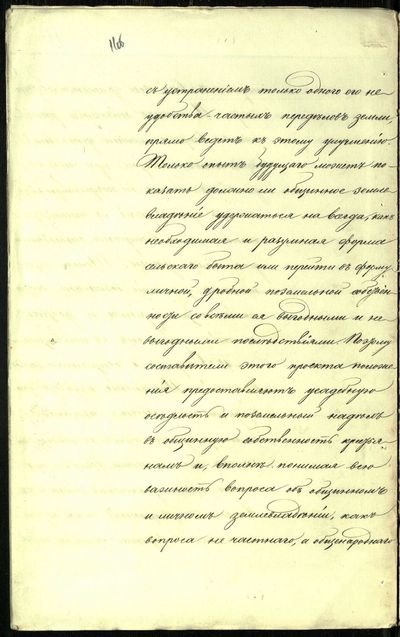 116
съ устраненіемъ только одного его не-
удобства - частыхъ передѣловъ земли
прямо ведетъ къ этому улучшенію.
Только опытъ будущаго можетъ по-
казать должно ли общинное земле-
владѣніе удержаться на всегда, какъ
необходимая и разумная форма
сельскаго быта или перейти въ форму
личной, дробной поземельной собствен-
ности со всѣми ея выгодными и не
выгодными послѣдствіями. Поэтому
составители этого проекта положе-
нія предоставляютъ усадебную
осѣдлость и поземельный надѣлъ
въ общинную собственность крестья-
намъ и, вполнѣ понимая всю
важность вопроса объ общинномъ
и личномъ землевладѣніи, какъ
вопроса не частнаго, а общенароднаго